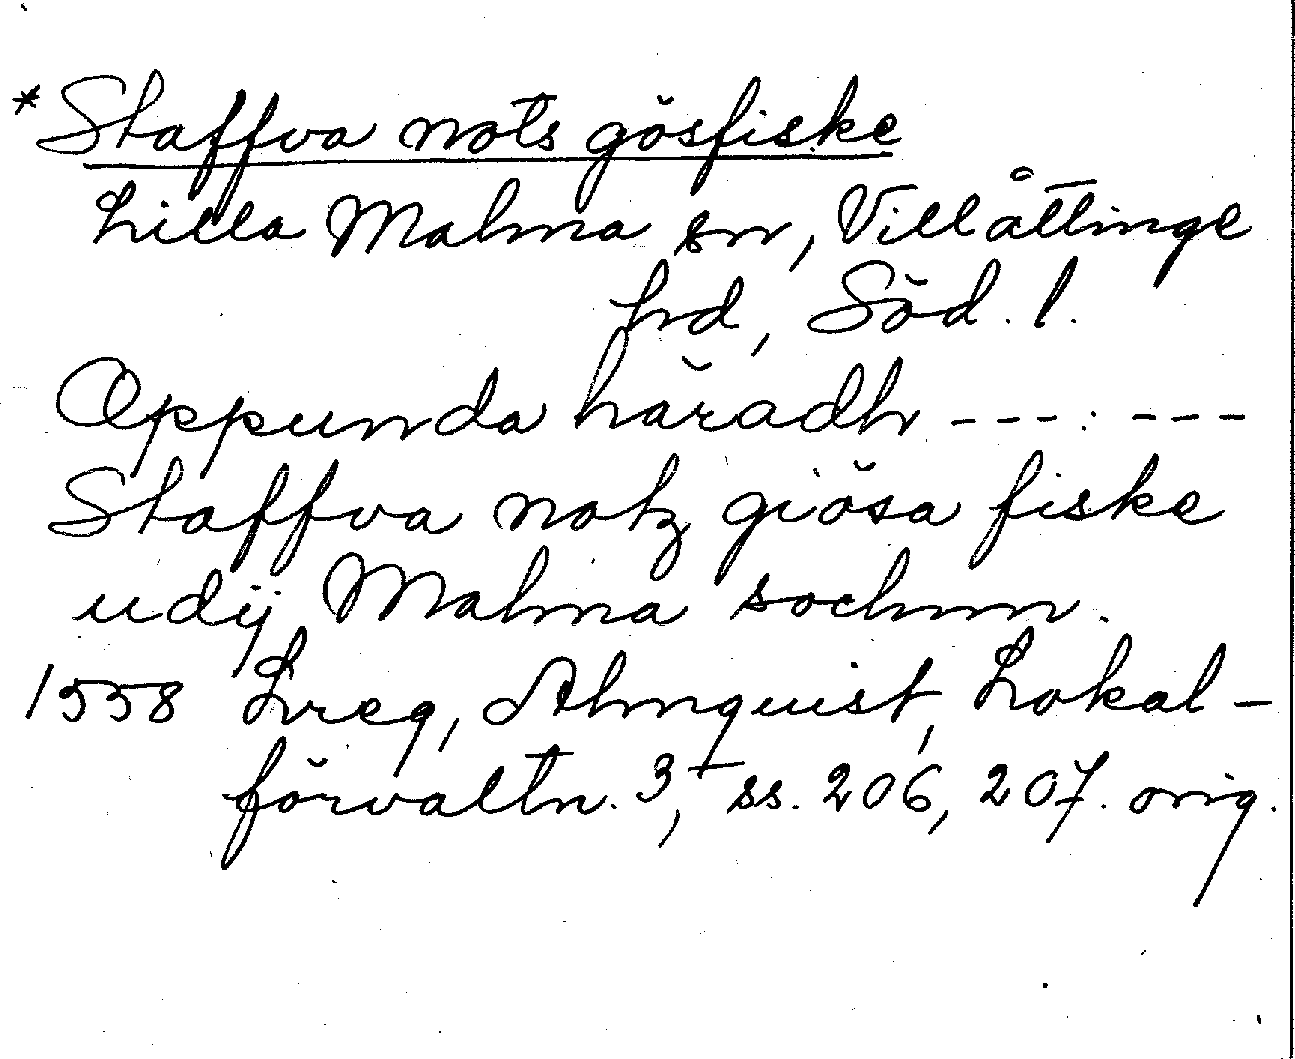 *Staffva nots gösfiske
Lilla Malma sn, Villåttinge
hrd, Söd. l.
Oppunda häradh ---:---
Staffva notz giösa fiske
udij Malma sochnn.
1558 Lreg, Almquist, Lokal-
förvaltn. 3, ss. 206, 207. orig.